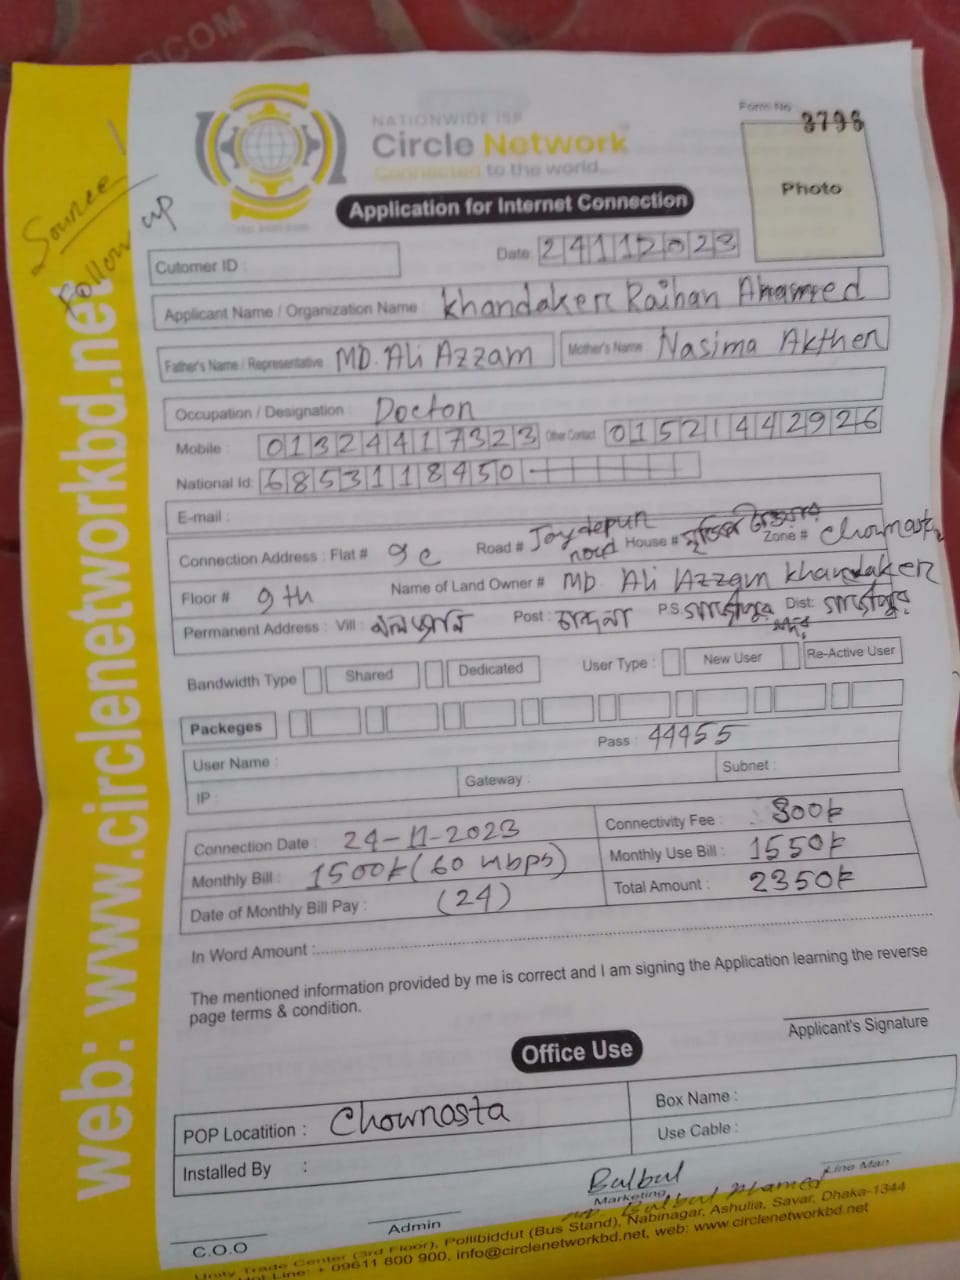 NATIONWIDE ISP
Circle Network
Connected to the world...
Form No 3796
Photo
Source
Follow up
Application for Internet Connection
Date: 24112023
Cutomer ID :
Applicant Name / Organization Name : Khandaker Raihan Ahamed
Father's Name / Representative MD. Ali Azzam Mother's Name : Nasima Akther
Occupation / Designation : Doctor
Mobile : 01324417323 Other Contact 01521442926
National Id: 6853118450
E-mail :
Connection Address : Flat # 9c Road # Joydepur road House # Zone # Chowrasta
Floor # 9th Name of Land Owner # MD. Ali Azzam Khandaker
Permanent Address : Vill : Post : P.S. Dist:
Bandwidth Type Shared Dedicated User Type : New User Re-Active User
Packeges
User Name : Pass : 44455
IP : Gateway : Subnet :
Connection Date : 24-11-2023 Connectivity Fee : 800৳
Monthly Bill : 1500৳ (60 mbps) Monthly Use Bill : 1550৳
Date of Monthly Bill Pay : (24) Total Amount : 2350৳
In Word Amount :
The mentioned information provided by me is correct and I am signing the Application learning the reverse
page terms & condition.
Applicant's Signature
Office Use
POP Locatition : Chowrasta Box Name :
Installed By : Use Cable :
Bulbul
Marketing Line Man
Bulbul Ahamed
C.O.O Admin
Unity Trade Center (3rd Floor), Pollibiddut (Bus Stand), Nabinagar, Ashulia, Savar, Dhaka-1344
Hot Line: + 09611 800 900, info@circlenetworkbd.net, web: www.circlenetworkbd.net
web: www.circlenetworkbd.net